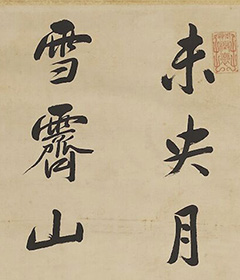 未央月
雪霽山